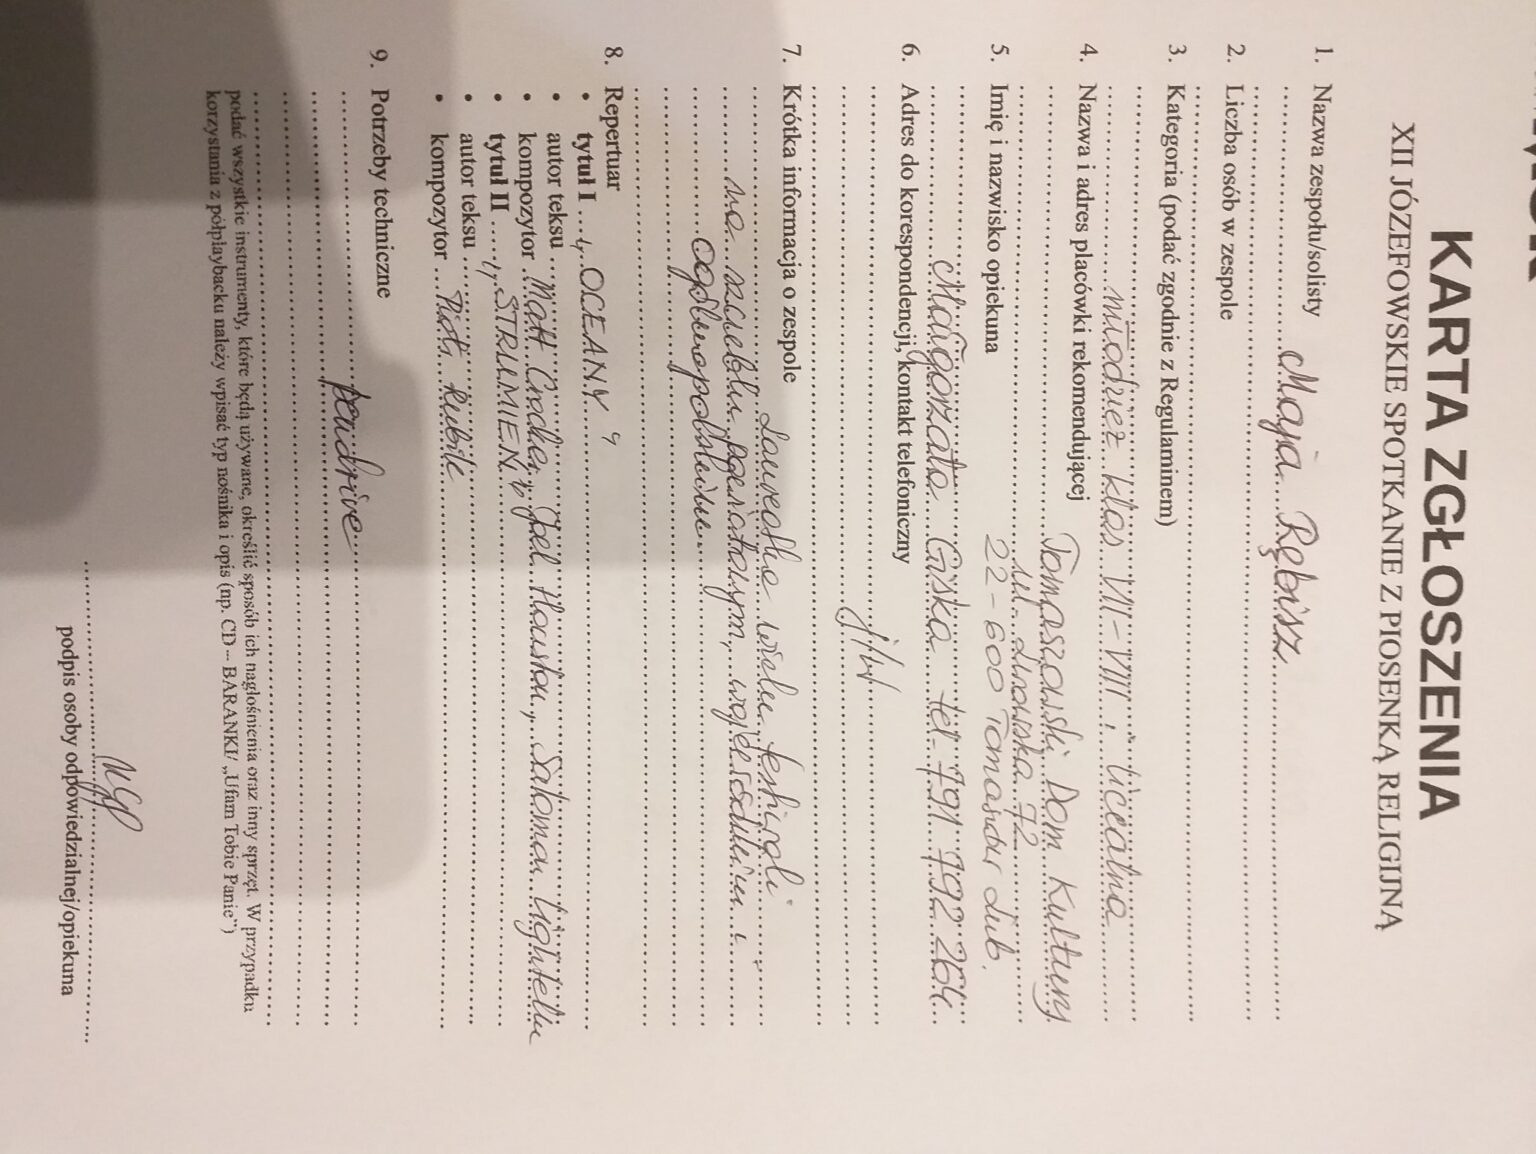 KARTA ZGŁOSZENIA
XII JÓZEFOWSKIE SPOTKANIE Z PIOSENKĄ RELIGIJNĄ
1. Nazwa zespołu/solisty
Maja Rębisz
2. Liczba osób w zespole
3. Kategoria (podać zgodnie z Regulaminem)
młodzież klas VII-VIII i licealna
4. Nazwa i adres placówki rekomendującej
Tomaszowski Dom Kultury
ul. Lwowska 72
22-600 Tomaszów Lub.
5. Imię i nazwisko opiekuna
Małgorzata Giska tel. 791 792 264
6. Adres do korespondencji, kontakt telefoniczny
j/w
7. Krótka informacja o zespole
Laureatka wielu festiwali
na szczeblu powiatowym, wojewódzkim i
ogólnopolskim
8. Repertuar
• tytuł I „OCEANY”
• autor teksu
• kompozytor Matt Crocker, Joel Houston, Salomon Lighthelm
• tytuł II „STRUMIEŃ
• autor teksu
• kompozytor Piotr Rubik
9. Potrzeby techniczne
pendrive
podać wszystkie instrumenty, które będą używane, określić sposób ich nagłośnienia oraz inny sprzęt. W przypadku
korzystania z półplaybacku należy wpisać typ nośnika i opis (np. CD – BARANKI/ „Ufam Tobie Panie”)
podpis osoby odpowiedzialnej/opiekuna